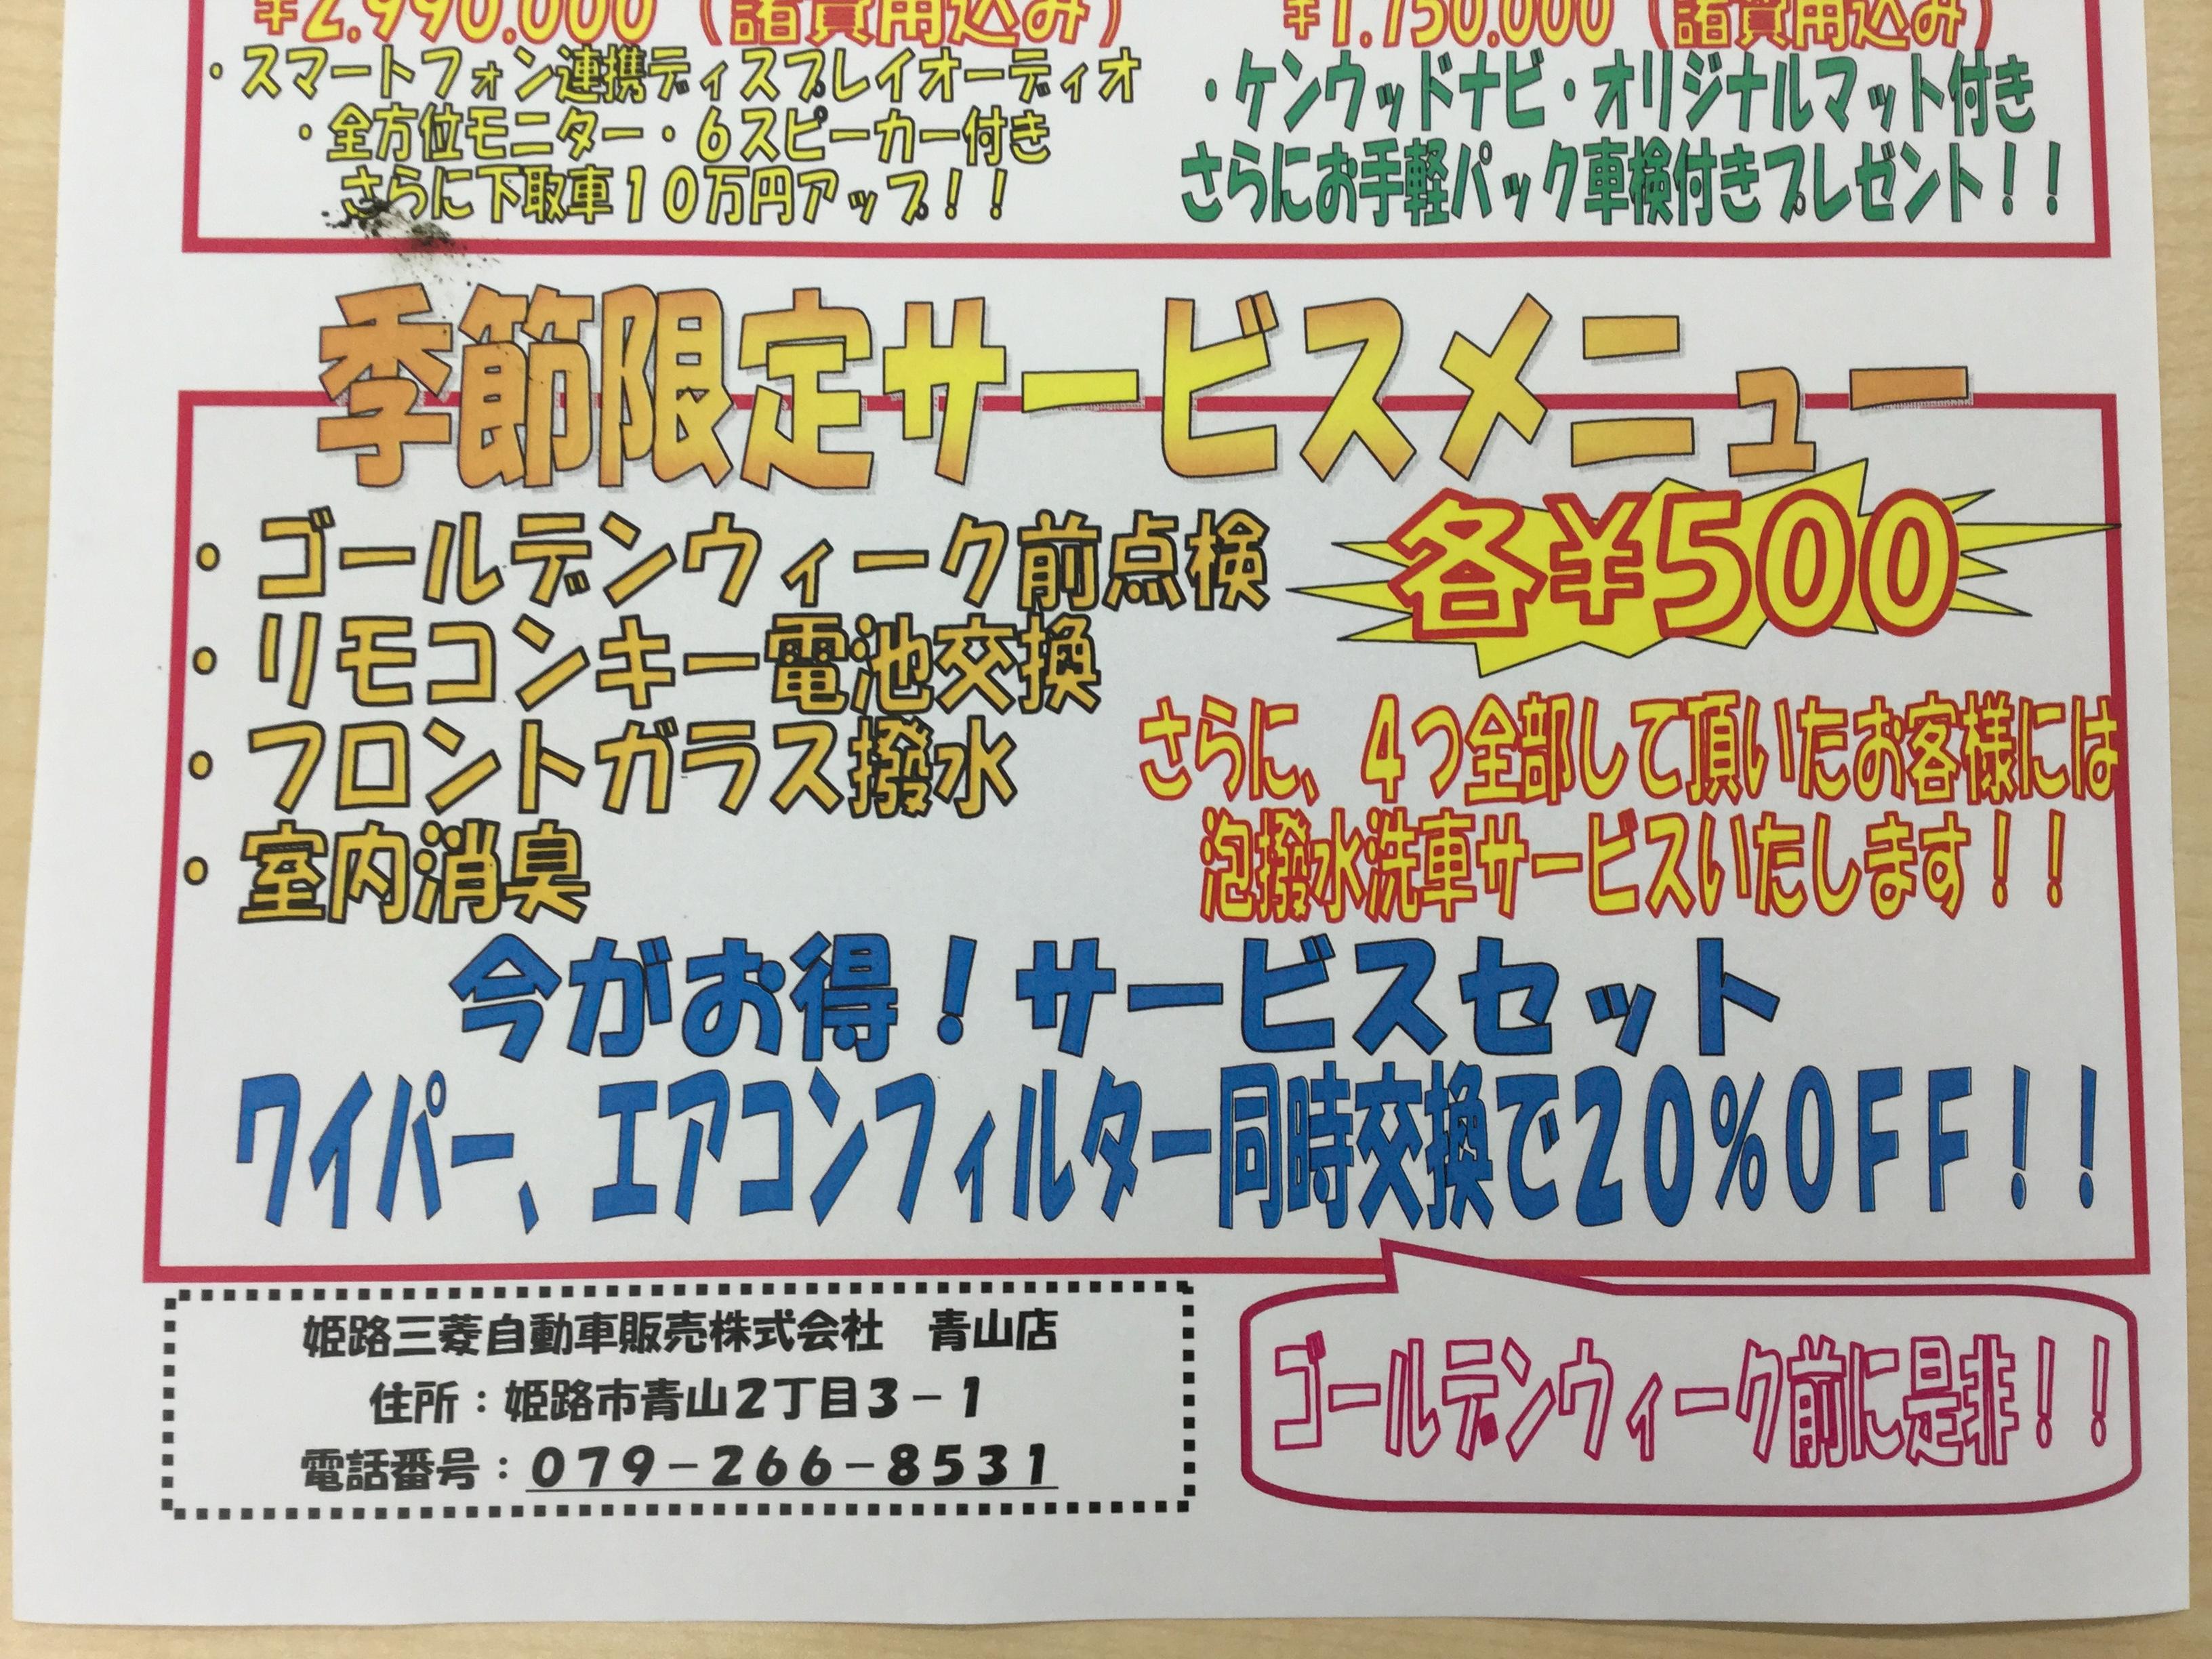 ¥2.990.000（諸費用込み）
・スマートフォン連携ディスプレイオーディオ
・全方位モニター・６スピーカー付き
さらに下取車１０万円アップ！！
¥1.750.000（諸費用込み）
・ケンウッドナビ・オリジナルマット付き
さらにお手軽パック車検付きプレゼント！！
季節限定サービスメニュー
・ゴールデンウィーク前点検
・リモコンキー電池交換
・フロントガラス撥水
・室内消臭
各¥500
さらに、４つ全部して頂いたお客様には
泡撥水洗車サービスいたします！！
今がお得！サービスセット
ワイパー、エアコンフィルター同時交換で２０％ＯＦＦ！！
姫路三菱自動車販売株式会社　青山店
住所：姫路市青山２丁目３－１
電話番号：０７９－２６６－８５３１
ゴールデンウィーク前に是非！！